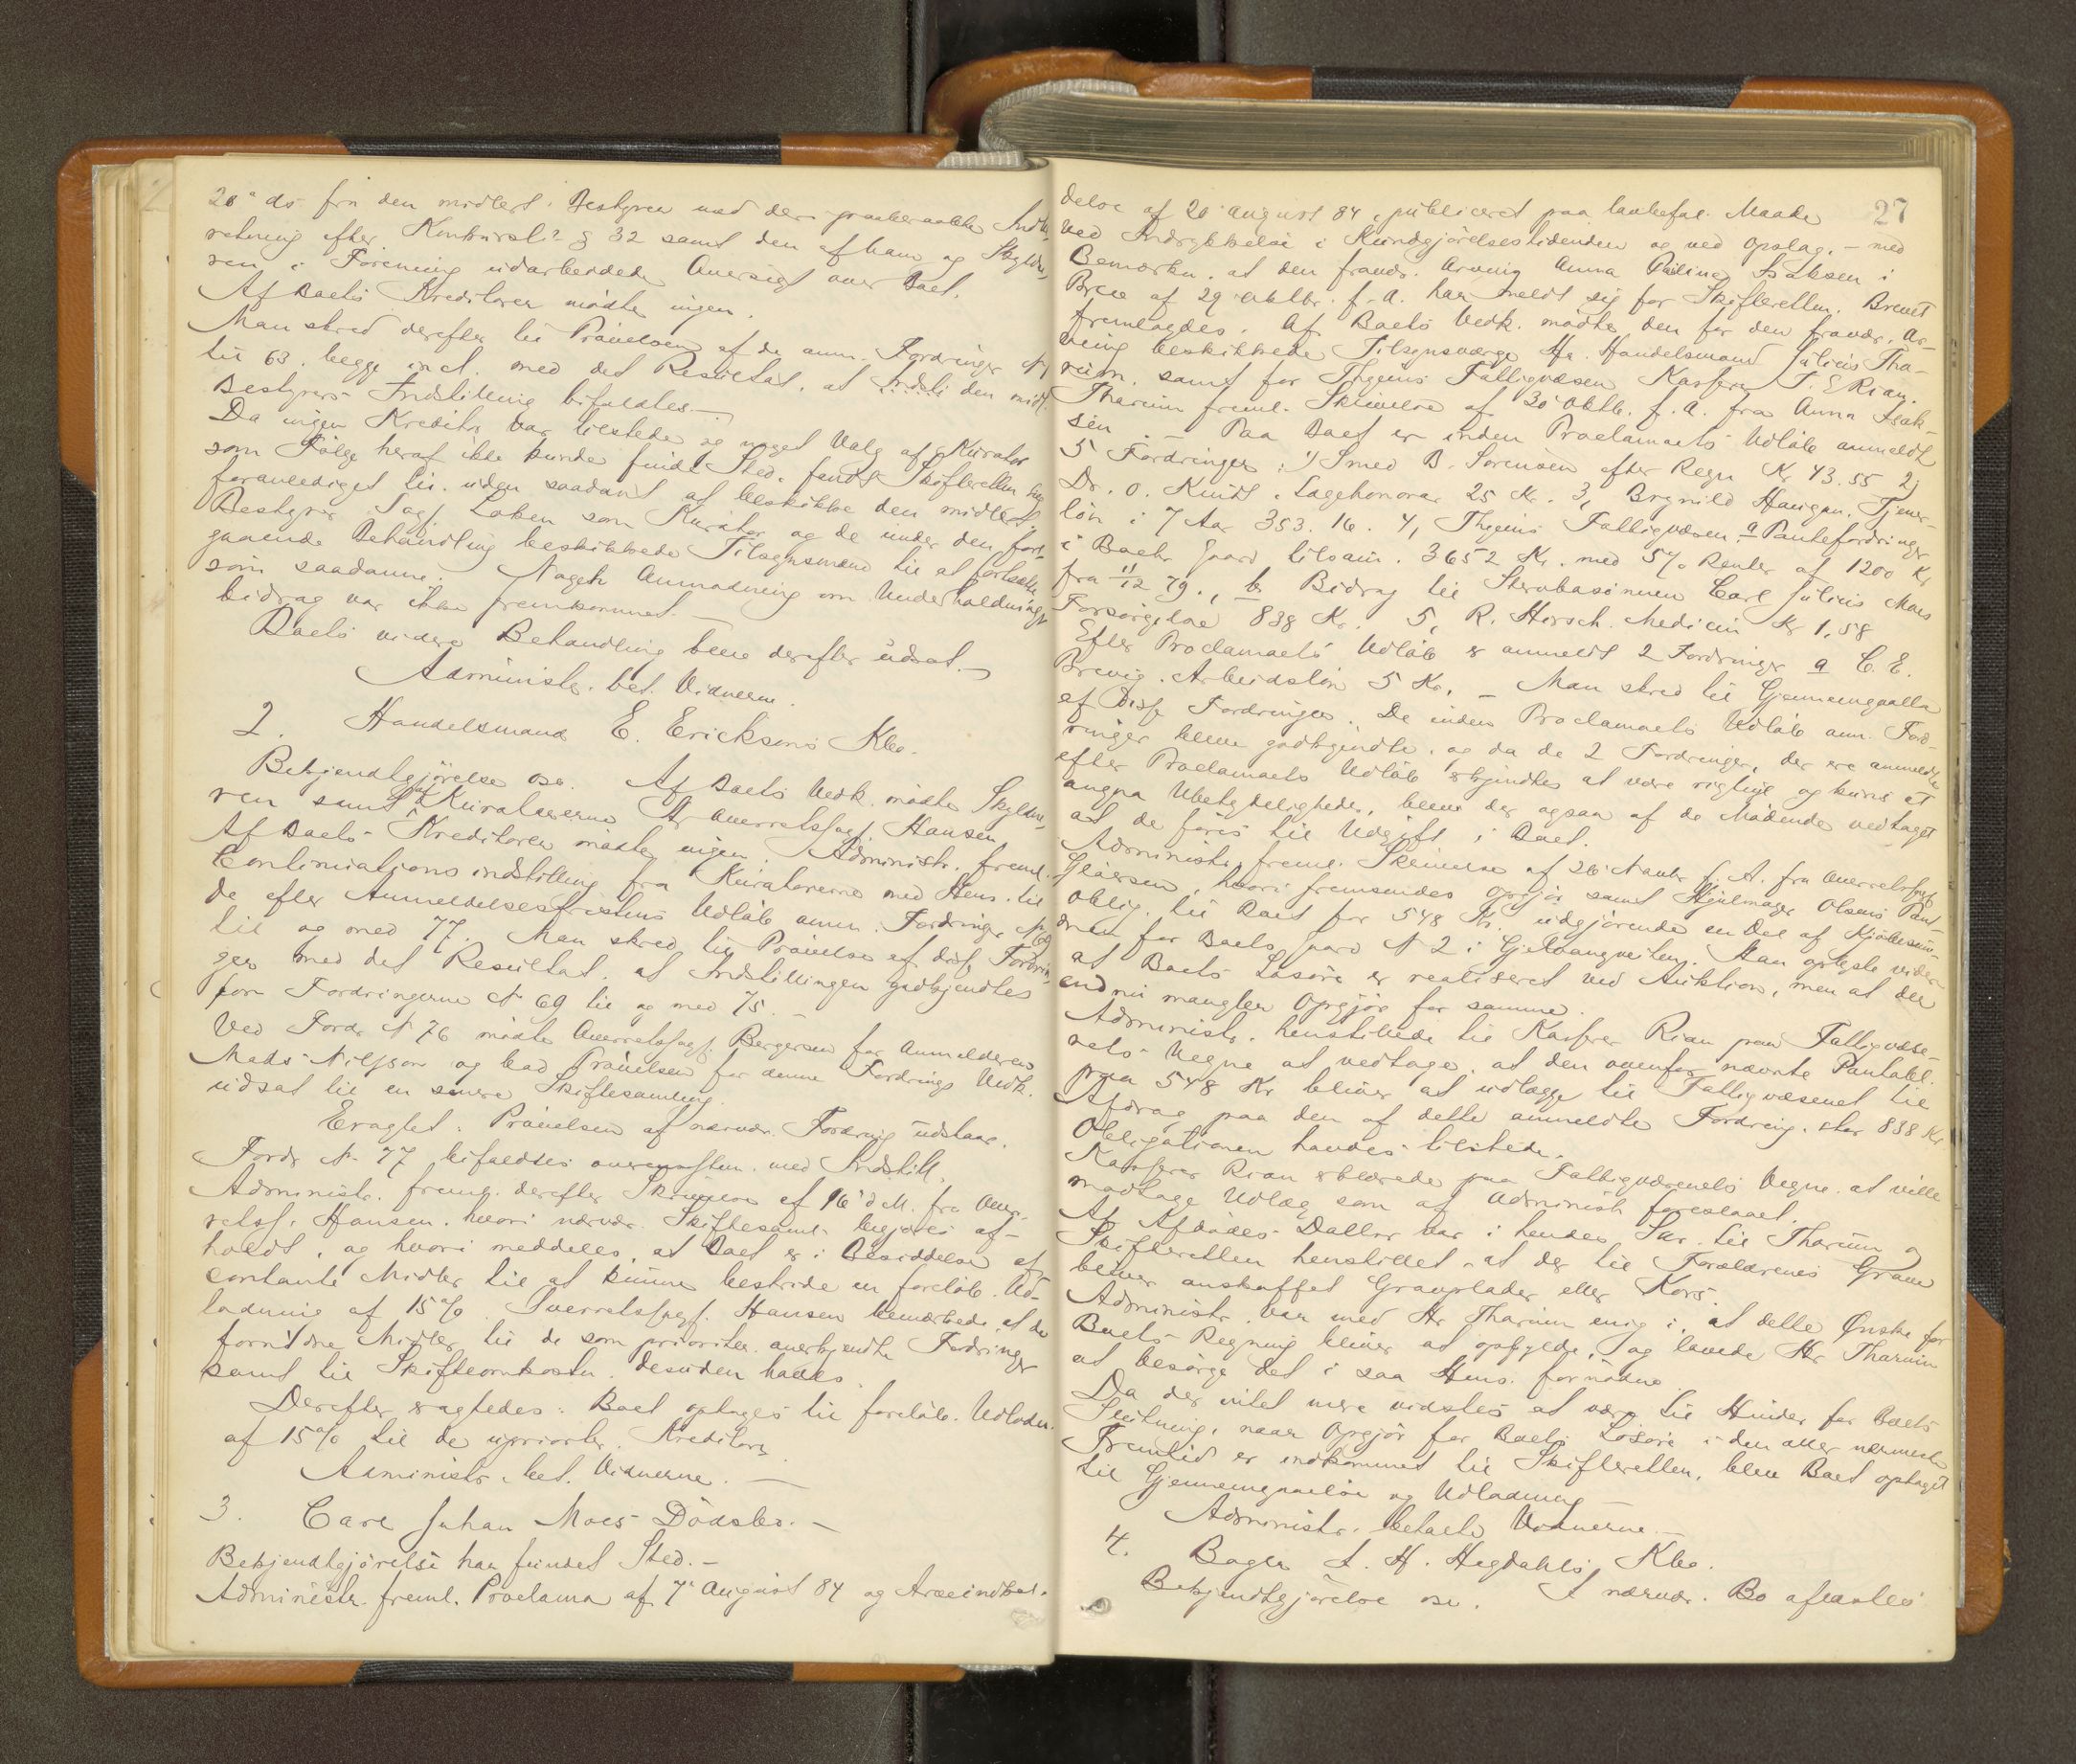 20de ds. fra den midlert. Bestyrer med den paaberaabte Indbe-
retning efter Konkursl. § 32 samt den af ham og Skyldne-
ren i Forening udarbeidede Oversigt over Boet.
Af Boets Kreditorer mødte ingen.
Man skred derefter til Prøvelsen af de anm. Fordringer N 1
til 63. begge incl. med det Resultat, at den midl.
Bestyrers Indstilling bifaldtes.—
Da ingen Kreditor var tilstede og noget Valg af Kurator
som Følge heraf ikke kunde finde Sted, fandt Skifteretten sig
foranlediget til uden saadant at beskikke den midlert.
Bestyrer Sagf. Løken som Kurator og de under den fore-
gaaende Behandling beskikkede Tilsynsmænd til at fortsætte
som saadanne. Nogen Anmodning om Underholdnings-
bidrag var ikke fremkommet.—
Boets videre Behandling blev derefter udsat.—
Administr. bet. Vidnerne.
2. Handelsmand E. Ericksons Kbo.
Bekjendtgjørelse osv. Af Boets Vedk. mødte Skyldne-
ren samt af Kuratorerne Hr. Overretssagf. Hansen.
Af Boets Kreditorer mødte ingen. Administr. freml.
Continuations indstilling fra Kuratorerne med Hens. til
de efter Anmeldelsesfristens Udløb anm. Fordringer N 69
til og med 77. Man skred til Prøvelse af disse Fordrin-
ger med det Resultat, at Indstillingen godkjendtes
for Fordringerne N 69 til og med 75.—
Ved Fordr. N 76 mødte Overretssagf. Bergersen for Anmelderen
Mads Nilsson og bad Prøvelsen for denne Fordrings Vedk.
udsat til en senere Skiftesamling.
Eragtet: Prøvelsen af nærvær. Fordring udstaar.
Fordr. N. 77 bifaldtes overensstem. med Indstill.
Administr. freml. derefter Skrivelse af 16de d.M. fra Over-
retssf. Hansen, hvori nærvær. Skiftesaml. begjæres af-
holdt, og hvori meddeles, at Boet er i Besiddelse af
contante Midler til at kunne bestride en foreløb. Ud-
lodning af 15 %. Overretssagf. Hansen bemærkede, at de
fornødne Midler til de som priorit. anerkjendte Fordringer
samt til Skifteomkostn. desuden haves.
Derefter eragtedes: Boet optages til foreløb. Udlodn.
af 15 % til de upriorit. Kreditorer.
Administr. bet. Vidnerne.—
3. Carl Johan Moes Dødsbo.—
Bekjendtgjørelse har fundet Sted.—
Administr. freml. Proclama af 7de August 84 og Arveindkal-
27
delse af 20 August 84, publiceret paa lovbefal. Maade
ved Indrykkelse i Kundgjørelsestidenden og ved Opslag, — med
Bemærkn. at den fravær. Arving Anna Pauline Isaksen i
Brev af 29 Oktbr. f.A. har meldt sig for Skifteretten. Brevet
fremlagdes. Af Boets Vedk. mødte den for den fravær. Ar-
ving beskikkede Tilsynsværge Hr. Handelsmand Julius Tha-
rum, samt for Thjems Fattigvæsen Kasserer T. Rian.
Tharum freml. Skrivelse af 30 Oktb. f.A. fra Anna Isak-
sen.— Paa Boet er inden Proclamaets Udløb anmeldt
5 Fordringer: 1) Smed B. Sørensen efter Regn. Kr 43.55 2)
Dr. O. Lagehonorar 25 Kr. 3, Brynild Haugan. Tjener-
løn i 7 Aar 353.16. 4, Thjems Fattigvæsen a Pantefordringer
i Boets Gaard tilsam. 3652 Kr. med 5 % Renter af 1200 Kr
fra 11/12 79., b Bidrag til Stervbosønnen Carl Julius Moes
Forsørgelse 838 Kr. 5, R. Hirsch. Medicin Kr 1,58
Efter Proclamaets Udløb er anmeldt 2 Fordringer a C.E.
Brevig. Arbeidsløn 5 Kr.— Man skred til Gjennemgaaelse
af disse Fordringer. De inden Proclamaets Udløb anm. Ford-
ringer bleve godkjendte, og da de 2 Fordringer, der ere anmeldte
efter Proclamaets Udløb erkjendtes at være rigtige og kuns at
angaa Ubetydeligheder, bleve der ogsaa af de Mødende vedtaget
at de føres til Udgift i Boet.
Administr. freml. Skrivelse af 26 Novbr. f.A. fra Overretssagf.
hvori fremsendes Opgjør samt Hjulmager Olsens Pant-
oblig. til Boet for 548 Kr. udgjørende en Del af Kjøbesum-
men for Boets Gaard N 2 i Gjetvangveiten. Man oplyste videre
at Boets Løsøre er realiseret ved Auktion, men at der
endnu mangler Opgjør for samme.
Administr. henstillede til Kasserer Rian paa Fattigvæse-
nets Vegne at vedtage, at den ovenfor nævnte Pantobl.
paa 548 Kr bliver at udlægge til Fattigvæsenet til
Afdrag paa den af dette anmeldte Fordring, stor 838 Kr
Obligationen havdes tilstede.
Kasserer Rian erklærede paa Fattigvæsenets Vegne at ville
modtage Udlæg som af Administr. foreslaaet.
Af Afdødes Datter var i hendes Skr. til Tharum og
Skifteretten henstillet, at der til Forældrenes Grave
bliver anskaffet Gravplader eller Kors.
Administr. var med Hr. Tharum enig i, at dette Ønske for
Boets Regning bliver at opfylde, og lovede Hr Tharum
at besørge det i saa Hens. fornødne.
Da der intet mere vidstes at være til Hinder for Boets
Slutning, naar Opgjør for Boets Løsøre i den aller nærmeste
Fremtid er indkommet til Skifteretten, blev Boet optaget
til Gjennemgaaelse og Udlodning.—
Administr. betalte Vidnerne.—
4. Bager A. H. Hegdahls Kbo.
Bekjendtgjørelse osv. I nærvær. Bo afholdtes